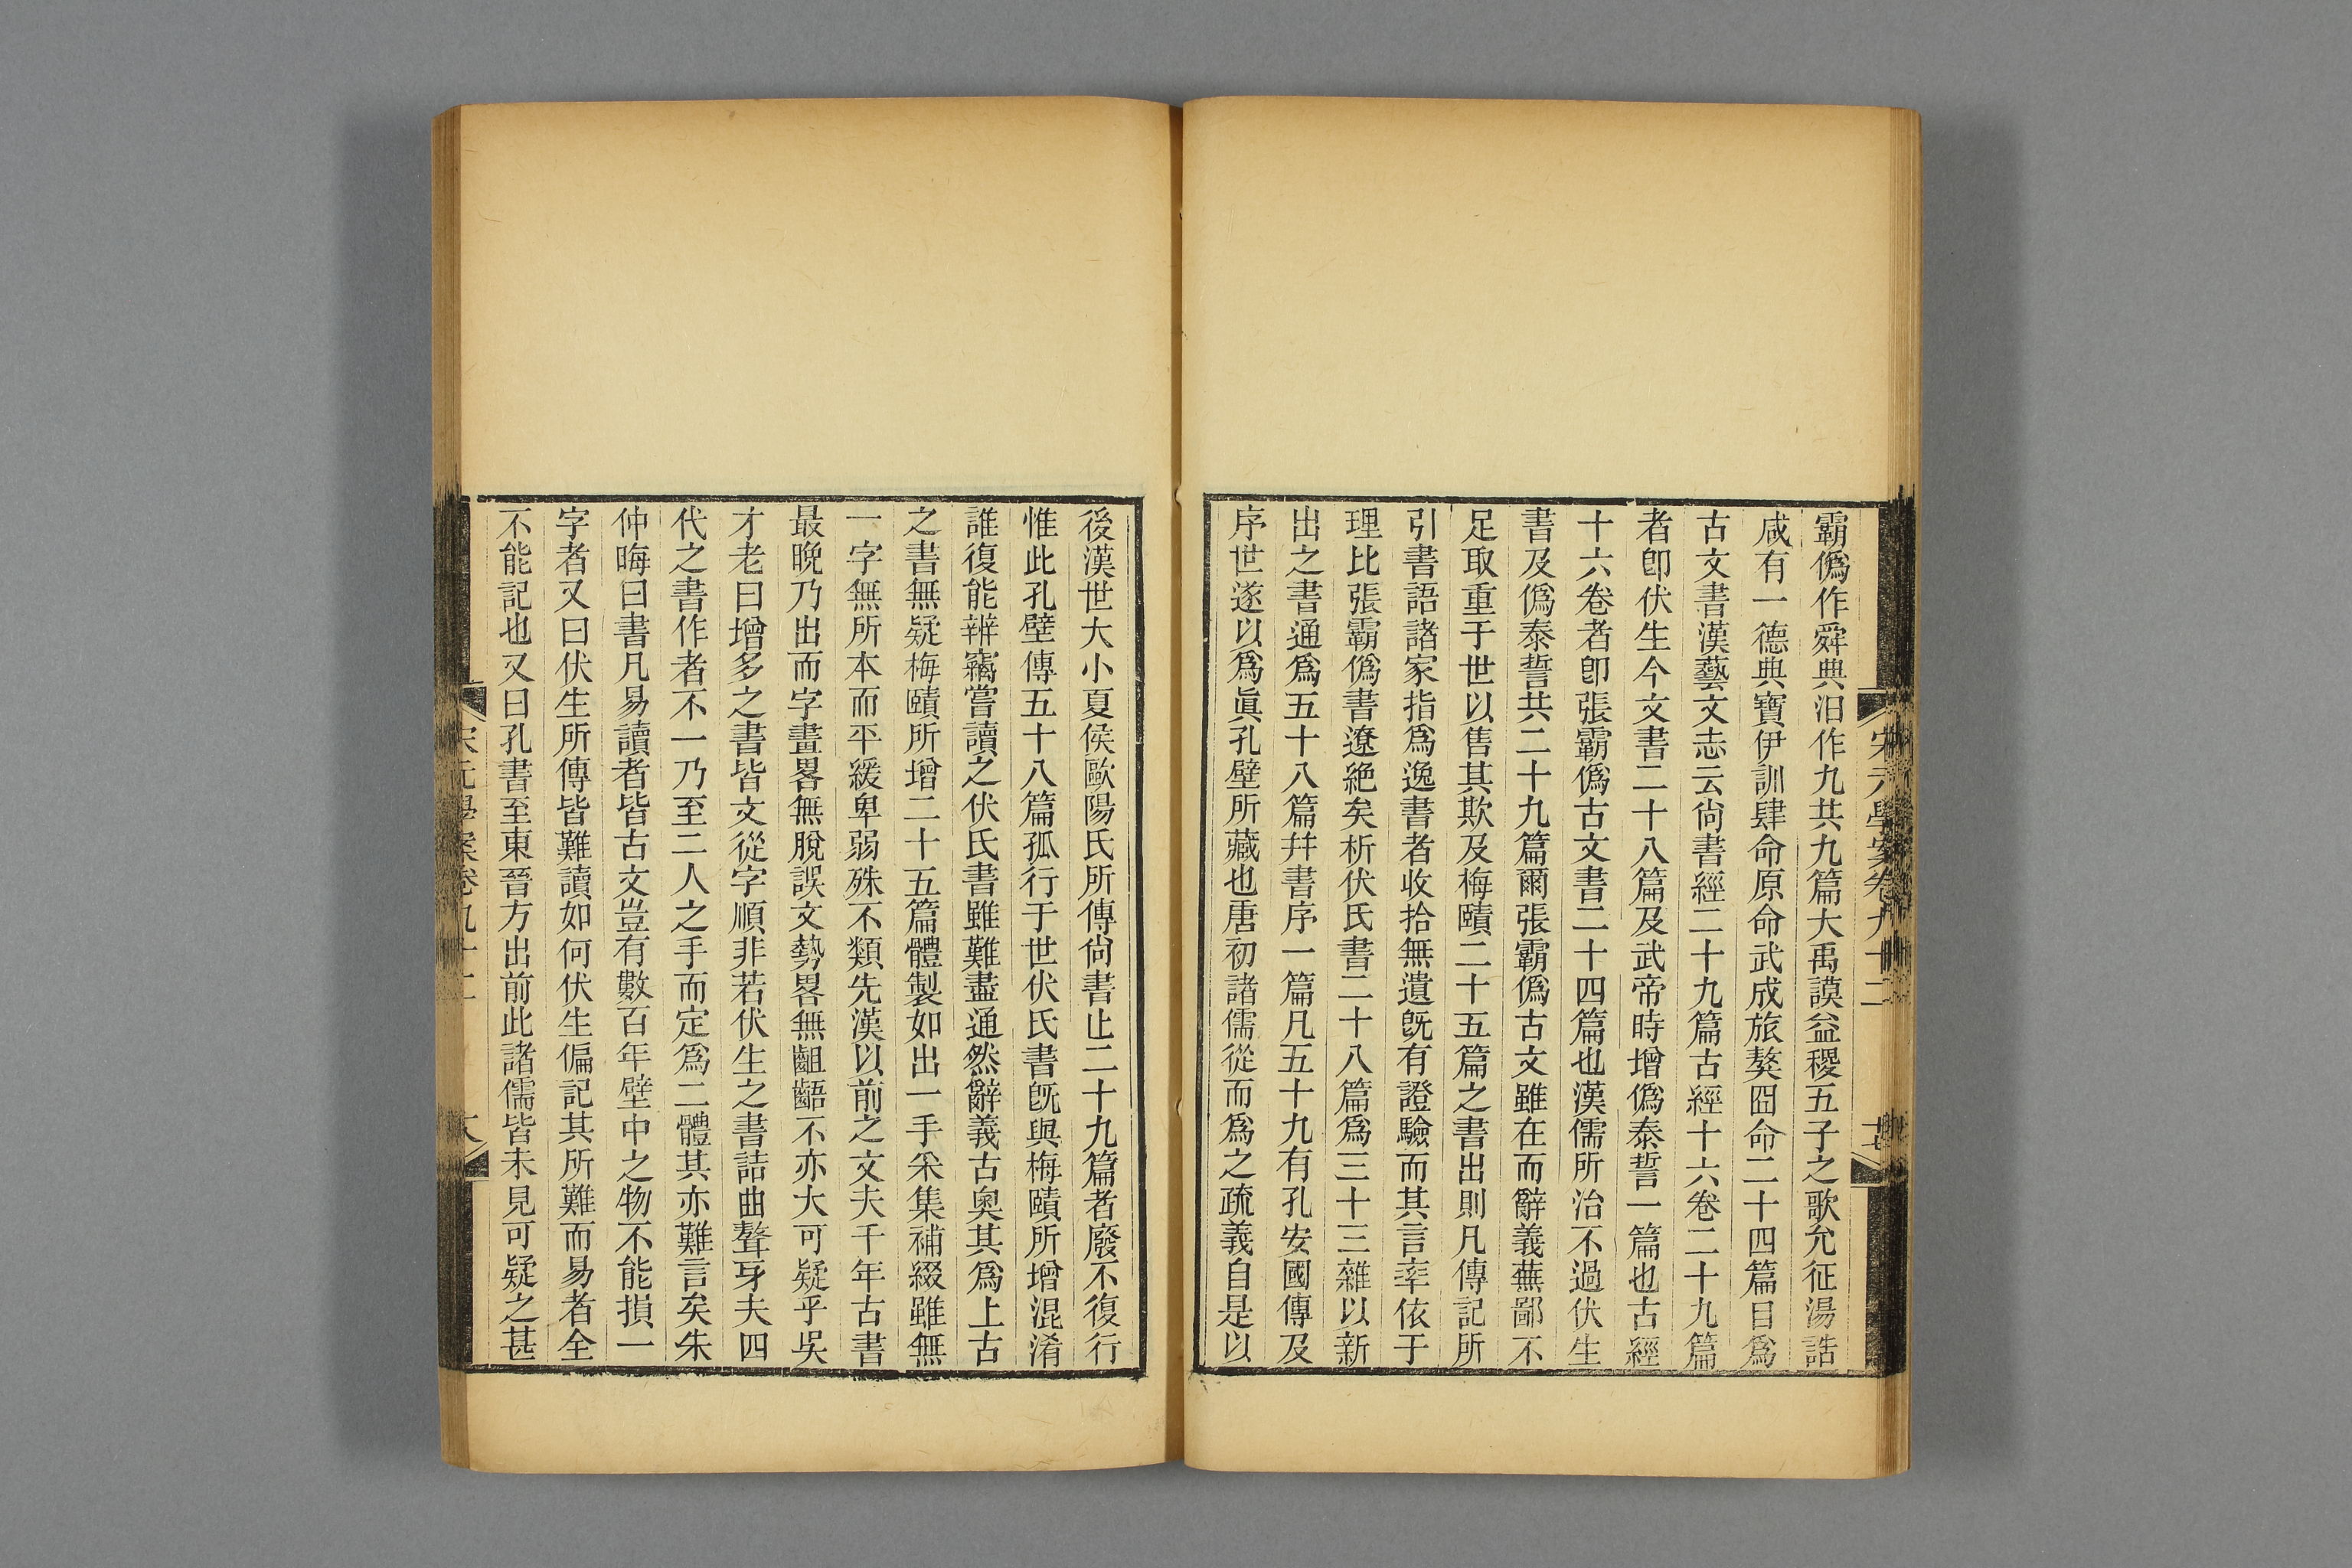 宋元學案卷九十二
霸僞作舜典汨作九共九篇大禹謨益稷五子之歌允征湯誥
咸有一德典寶伊訓肆命原命武成旅獒冏命二十四篇目爲
古文書漢藝文志云尙書經二十九篇古經十六卷二十九篇
者卽伏生今文書二十八篇及武帝時增僞泰誓一篇也古經
十六卷者卽張霸僞古文書二十四篇也漢儒所治不過伏生
書及僞泰誓共二十九篇爾張霸僞古文雖在而辭義蕪鄙不
足取重于世以售其欺及梅賾二十五篇之書出則凡傳記所
引書語諸家指爲逸書者收拾無遺旣有證驗而其言率依于
理比張霸僞書遼絕矣析伏氏書二十八篇爲三十三雜以新
出之書通爲五十八篇幷書序一篇凡五十九有孔安國傳及
序世遂以爲眞孔壁所藏也唐初諸儒從而爲之疏義自是以
後漢世大小夏侯歐陽氏所傳尙書止二十九篇者廢不復行
惟此孔壁傳五十八篇孤行于世伏氏書旣與梅賾所增混淆
誰復能辨竊嘗讀之伏氏書雖難盡通然辭義古奧其爲上古
之書無疑梅賾所增二十五篇體製如出一手采集補綴雖無
一字無所本而平緩卑弱殊不類先漢以前之文夫千年古書
最晚乃出而字畫畧無脫誤文勢畧無齟齬不亦大可疑乎吳
才老曰增多之書皆文從字順非若伏生之書詰曲聱牙夫四
代之書作者不一乃至二人之手而定爲二體其亦難言矣朱
仲晦曰書凡易讀者皆古文豈有數百年壁中之物不能損一
字者又曰伏生所傳皆難讀如何伏生偏記其所難而易者全
不能記也又曰孔書至東晉方出前此諸儒皆未見可疑之甚
宋元學案卷九十二